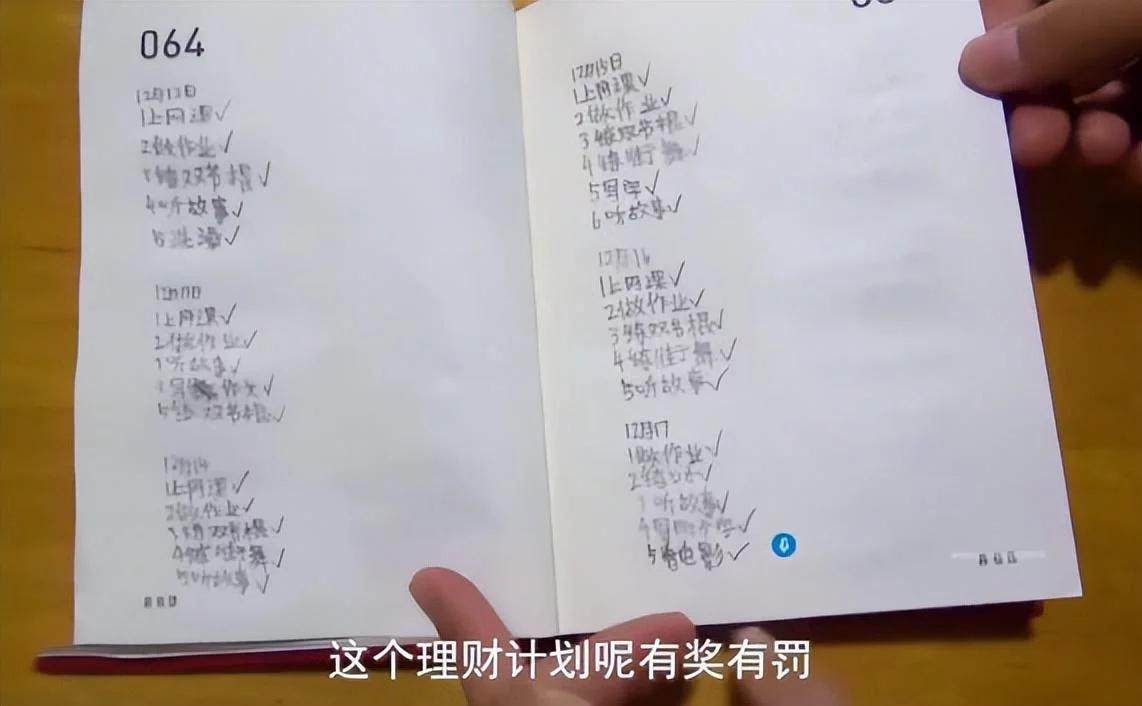 064
12月12日
1上网课✓
2做作业✓
3练双节棍✓
4听故事✓
5洗澡✓
12月13日
1上网课✓
2做作业✓
3听故事✓
4写作文✓
5练双节棍✓
12月14
1上网课✓
2做作业✓
3练双节棍✓
4练街舞✓
5听故事✓
12月15日
1上网课✓
2做作业✓
3练双节棍✓
4练街舞✓
5写字✓
6听故事✓
12月16
1上网课✓
2做作业✓
3练双节棍✓
4练街舞✓
5听故事✓
12月17
1做作业✓
2练✓
3听故事✓
4写✓
5看电影✓
这个理财计划呢有奖有罚